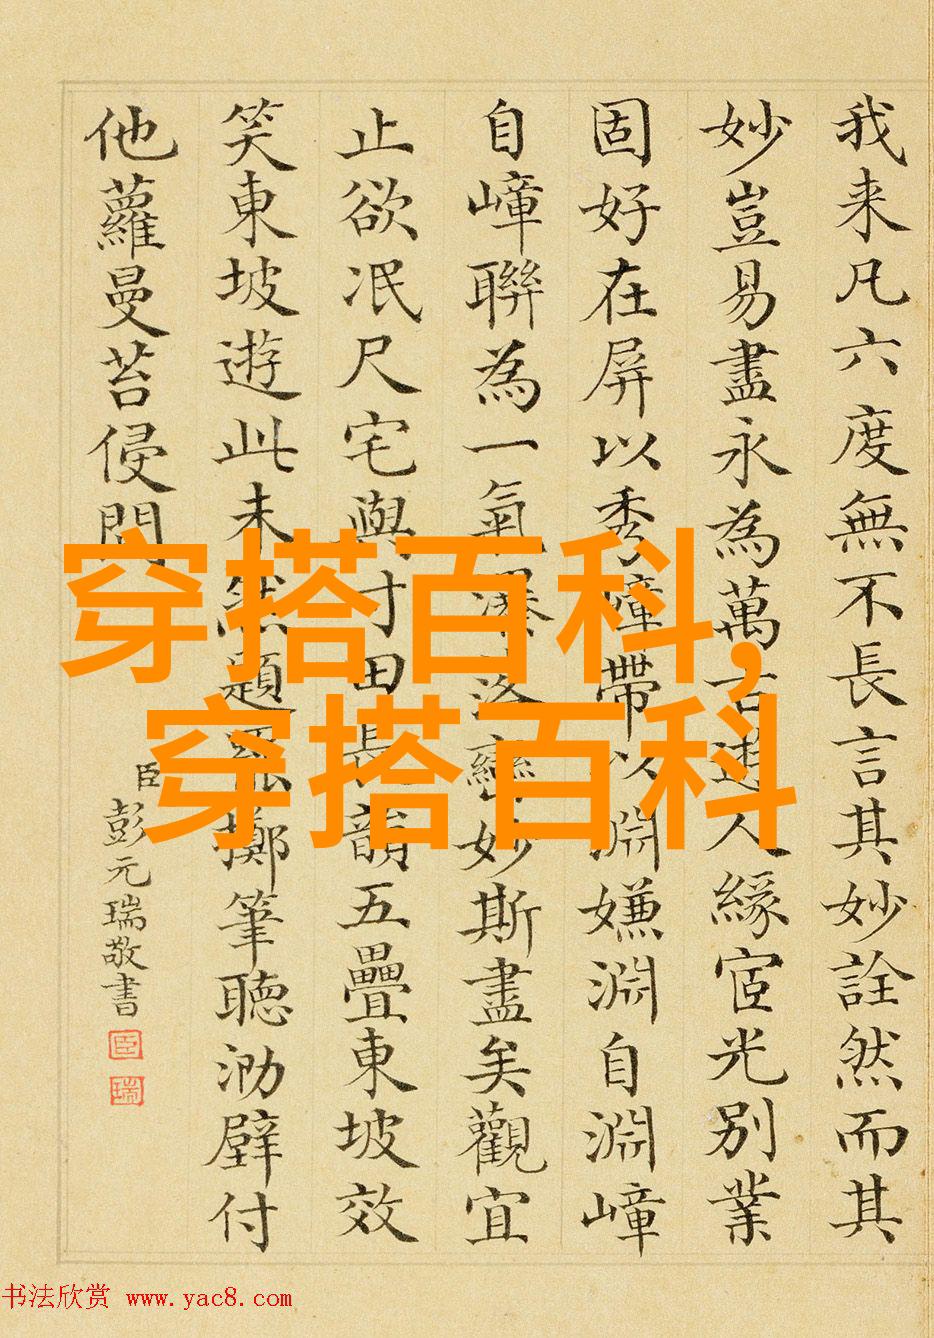 我来凡六度無不長言其妙詮然而其
妙豈易盡永為萬古人緣宧光別業
固好在屏以秀嶂帶以淵嫌淵自淵嶂
自嶂聯為一氣妙斯盡矣觀宜
止欲泯尺宅與寸田長韻五疊東坡效
笑東坡遊此未然題擲筆聽泐壁付
他蘿曼苔侵間
臣彭元瑞敬書
臣
瑞
穿搭百科,
穿搭百科
书法欣赏 www.yac8.com